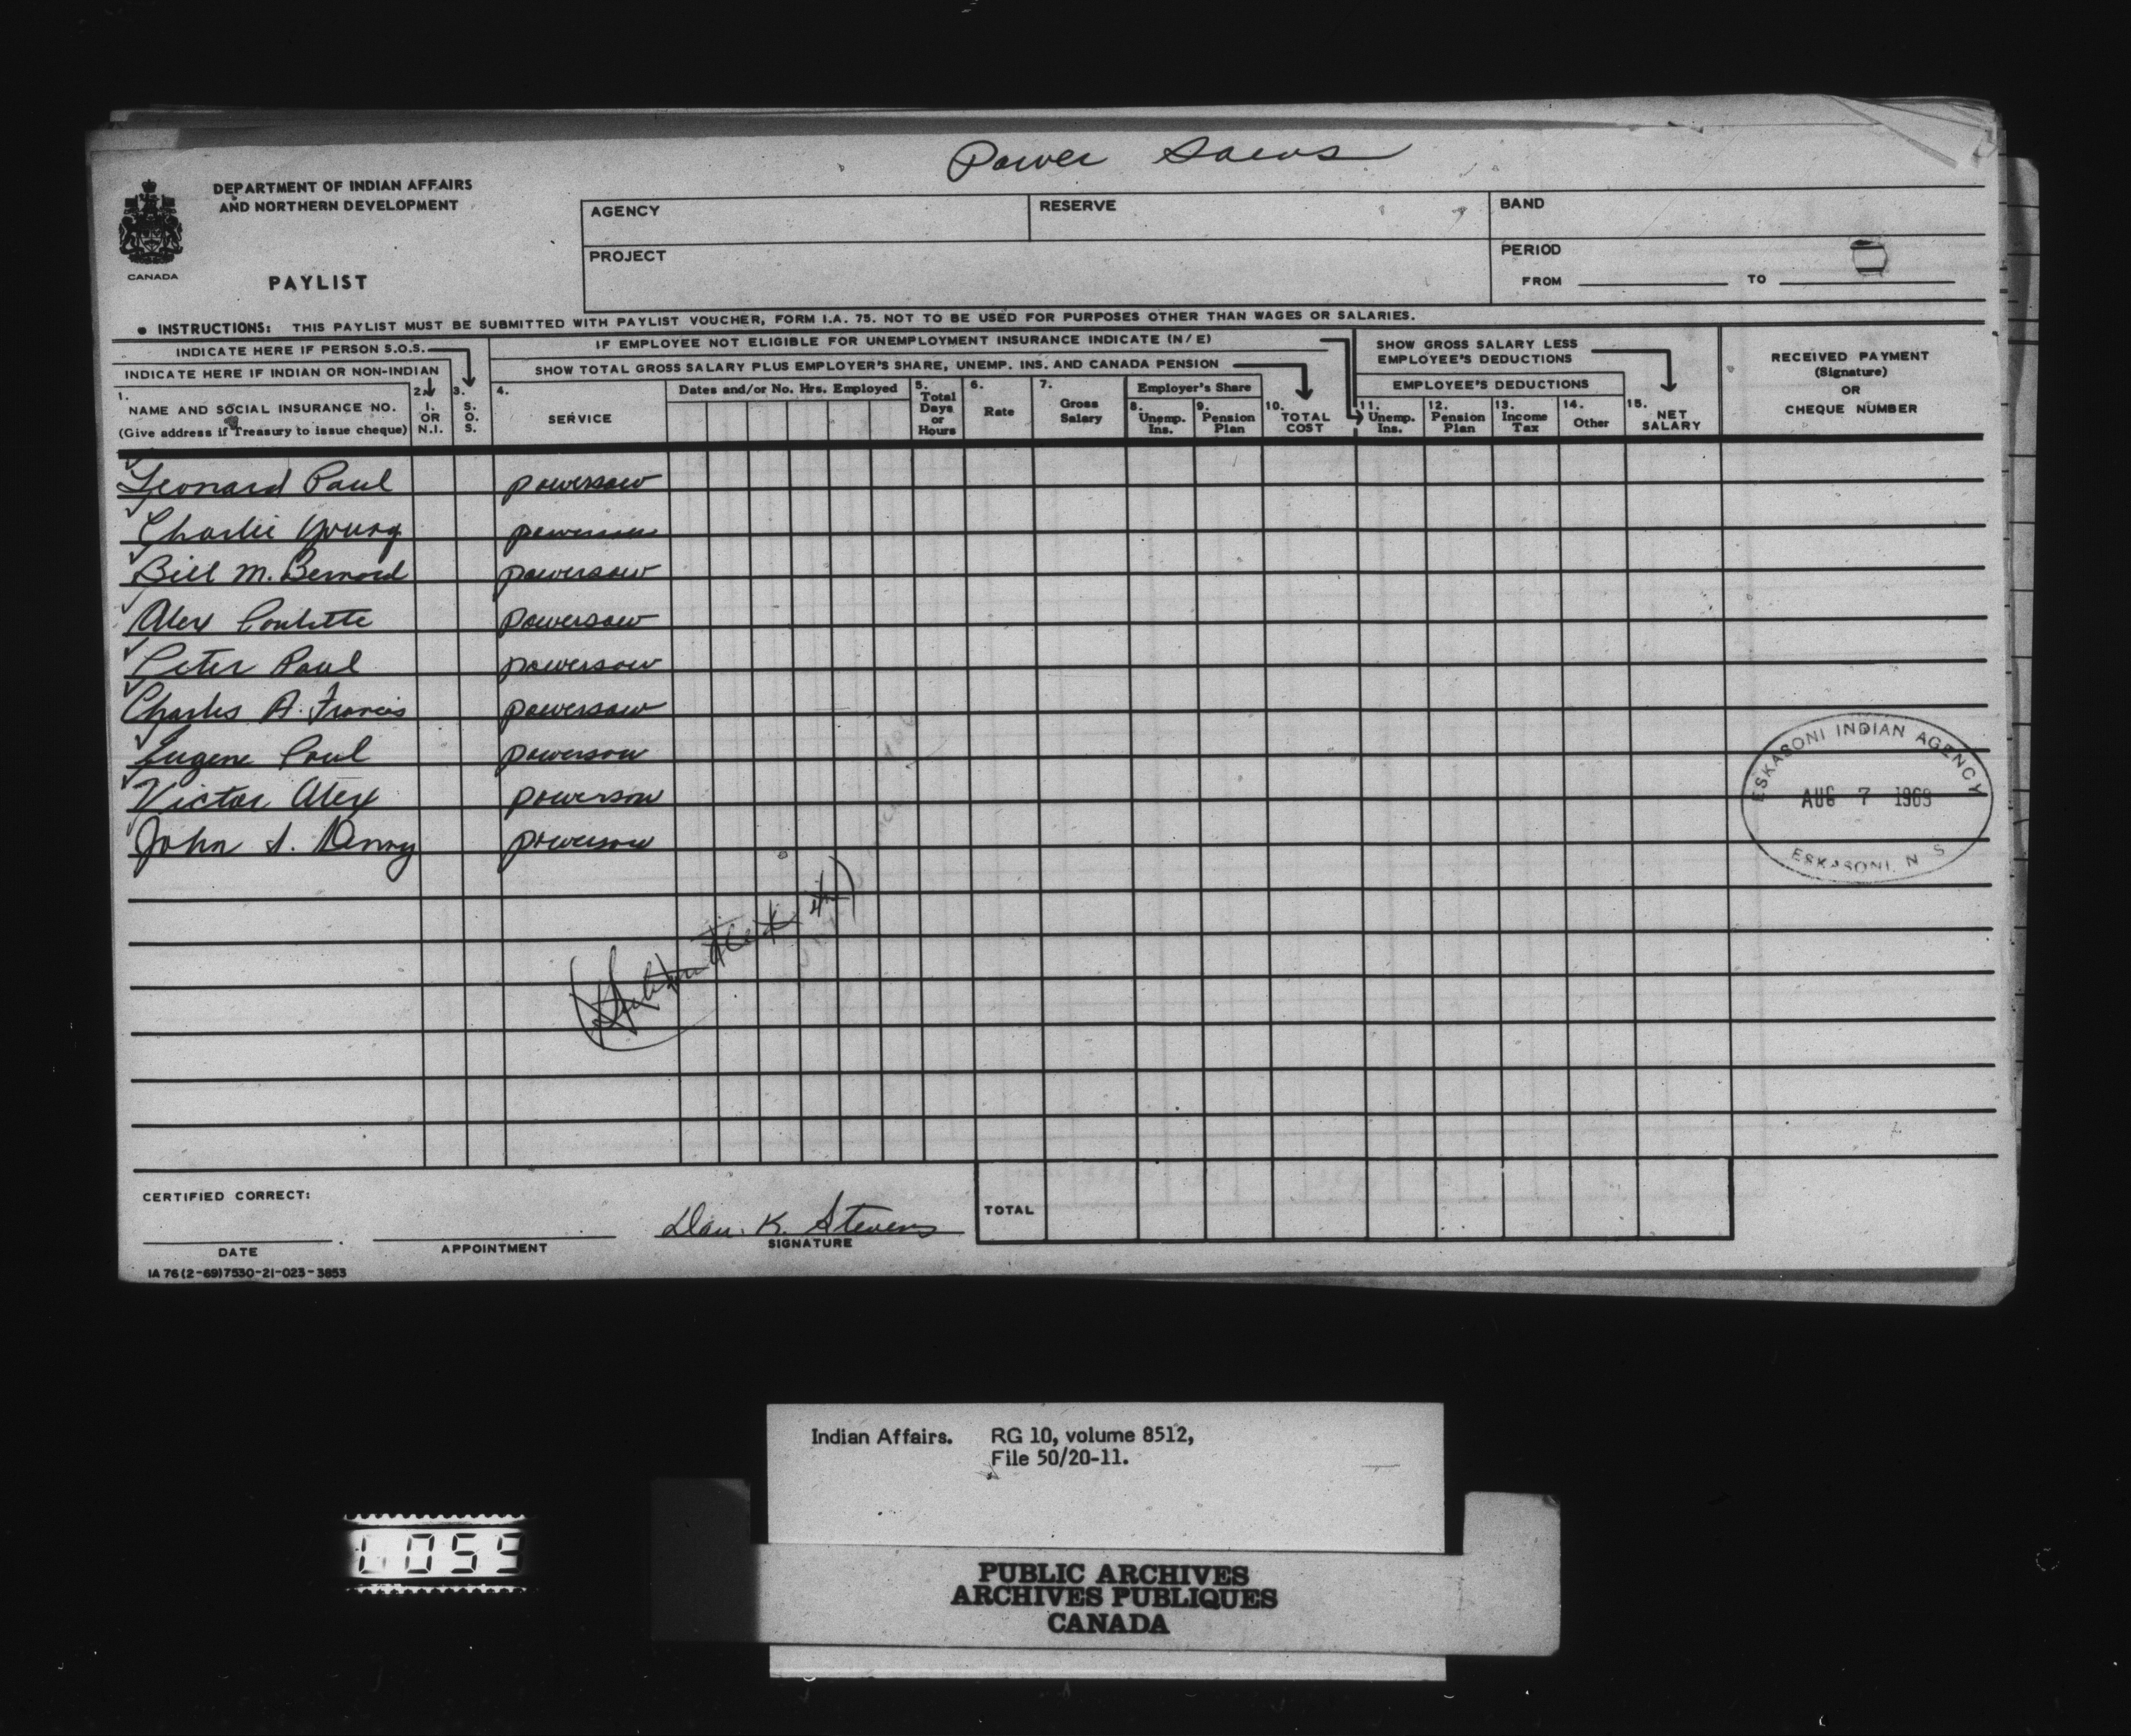 Power Saws
DEPARTMENT OF INDIAN AFFAIRS
AND NORTHERN DEVELOPMENT
CANADA
PAYLIST
AGENCY
RESERVE
BAND
PROJECT
PERIOD
FROM TO
• INSTRUCTIONS: THIS PAYLIST MUST BE SUBMITTED WITH PAYLIST VOUCHER, FORM I.A. 75. NOT TO BE USED FOR PURPOSES OTHER THAN WAGES OR SALARIES.
INDICATE HERE IF PERSON S.O.S.
INDICATE HERE IF INDIAN OR NON-INDIAN
IF EMPLOYEE NOT ELIGIBLE FOR UNEMPLOYMENT INSURANCE INDICATE (N/E)
SHOW TOTAL GROSS SALARY PLUS EMPLOYER'S SHARE, UNEMP. INS. AND CANADA PENSION
SHOW GROSS SALARY LESS
EMPLOYEE'S DEDUCTIONS
RECEIVED PAYMENT
(Signature)
OR
CHEQUE NUMBER
1.
NAME AND SOCIAL INSURANCE NO.
(Give address if Treasury to issue cheque)
2.
I.
OR
N.I.
3.
S.
O.
S.
4.
SERVICE
Dates and/or No. Hrs. Employed
5.
Total
Days
or
Hours
6.
Rate
7.
Gross
Salary
Employer's Share
8.
Unemp.
Ins.
9.
Pension
Plan
10.
TOTAL
COST
EMPLOYEE'S DEDUCTIONS
11.
Unemp.
Ins.
12.
Pension
Plan
13.
Income
Tax
14.
Other
15.
NET
SALARY
Leonard Paul powersaw
Charlie Young powersaw
Bill M. Bernard powersaw
Alex Poulette powersaw
Peter Paul powersaw
Charles A. Francis powersaw
Eugene Paul powersaw
Victor Alex powersaw
John S. Denny powersaw
ESKASONI INDIAN AGENCY
AUG 7 1969
ESKASONI, N S
CERTIFIED CORRECT:
Dan. K. Stevens
DATE
APPOINTMENT
SIGNATURE
TOTAL
IA 76 (2-69) 7530-21-023-3853
Indian Affairs. RG 10, volume 8512,
File 50/20-11.
PUBLIC ARCHIVES
ARCHIVES PUBLIQUES
CANADA